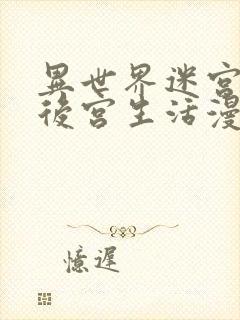 異世界迷宮
後宮生活漫
憶遲